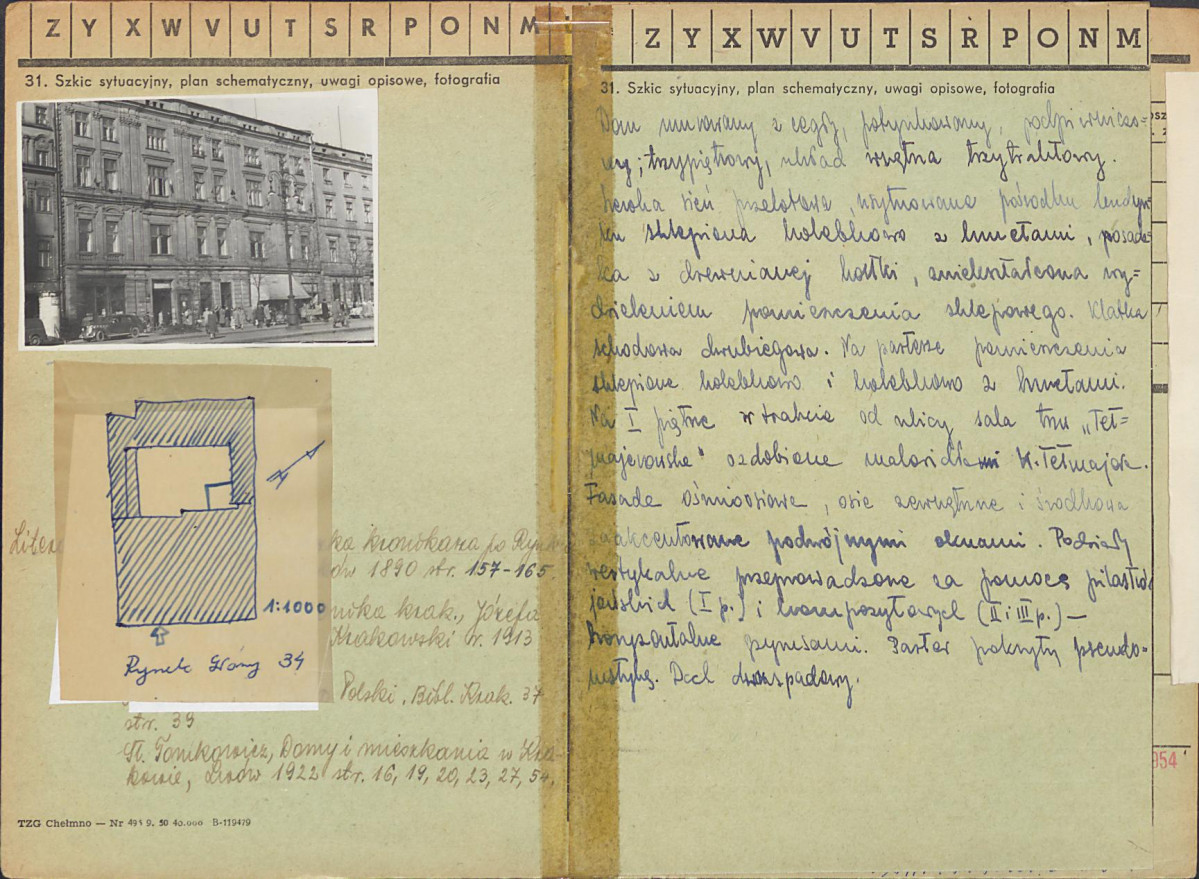 Z Y X W V U T S R P O N M
31. Szkic sytuacyjny, plan schematyczny, uwagi opisowe, fotografia
1:1000
Rynek Główny 34
ka kronikarza po Rynku
ów 1890 str. 157-165
ówka krak., Józefa
Krakowski r. 1913
Polski, Bibl. Krak. 37
str. 39
St. Tomkowicz, Domy i mieszkania w Kra-
kowie, Lwów 1922 str. 16, 19, 20, 23, 27, 54.
TZG Chełmno — Nr 491 9. 50 40.000 B-119479
Z Y X W V U T S R P O N M
31. Szkic sytuacyjny, plan schematyczny, uwagi opisowe, fotografia
Dom murowany z cegły, potynkowany, podpiwniczo=
ny; trzypiętrowy, układ wnętrza trzytraktowy.
Szeroka sień przelotowa, usytuowana pośrodku budyn=
ku sklepiona kolebkowo z lunetami, posadz=
ka z drewnianej kostki, zniekształcona wy=
dzieleniem pomieszczenia sklepowego. Klatka
schodowa dwubiegowa. Na parterze pomieszczenia
sklepione kolebkowo i kolebkowo z lunetami.
Na I piętrze w trakcie od ulicy sala tzw „Tet=
majerowska" ozdobiona malowidłami K. Tetmajera.
Fasada ośmioosiowa, osie zewnętrzne i środkowa
zaakcentowane podwójnymi oknami. Podziały
wertykalne przeprowadzone za pomocą pilastrów
jońskich (I p.) i kompozytowych (II i III p.) —
horyzontalne gzymsami. Parter pokryty pseudo-
rustyką. Dach dwuspadowy.
954